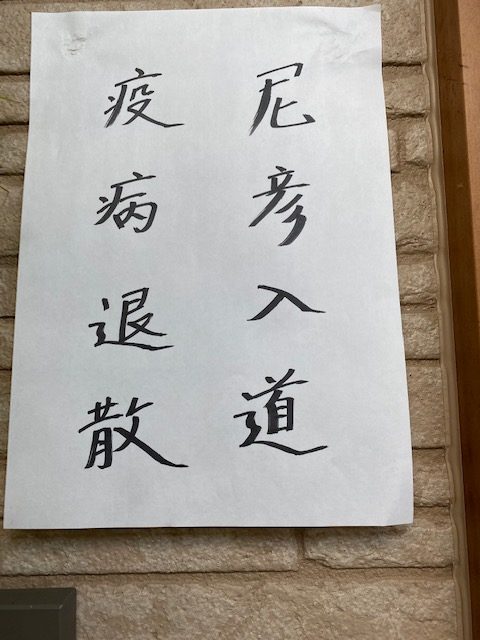 尼彦入道
疫病退散